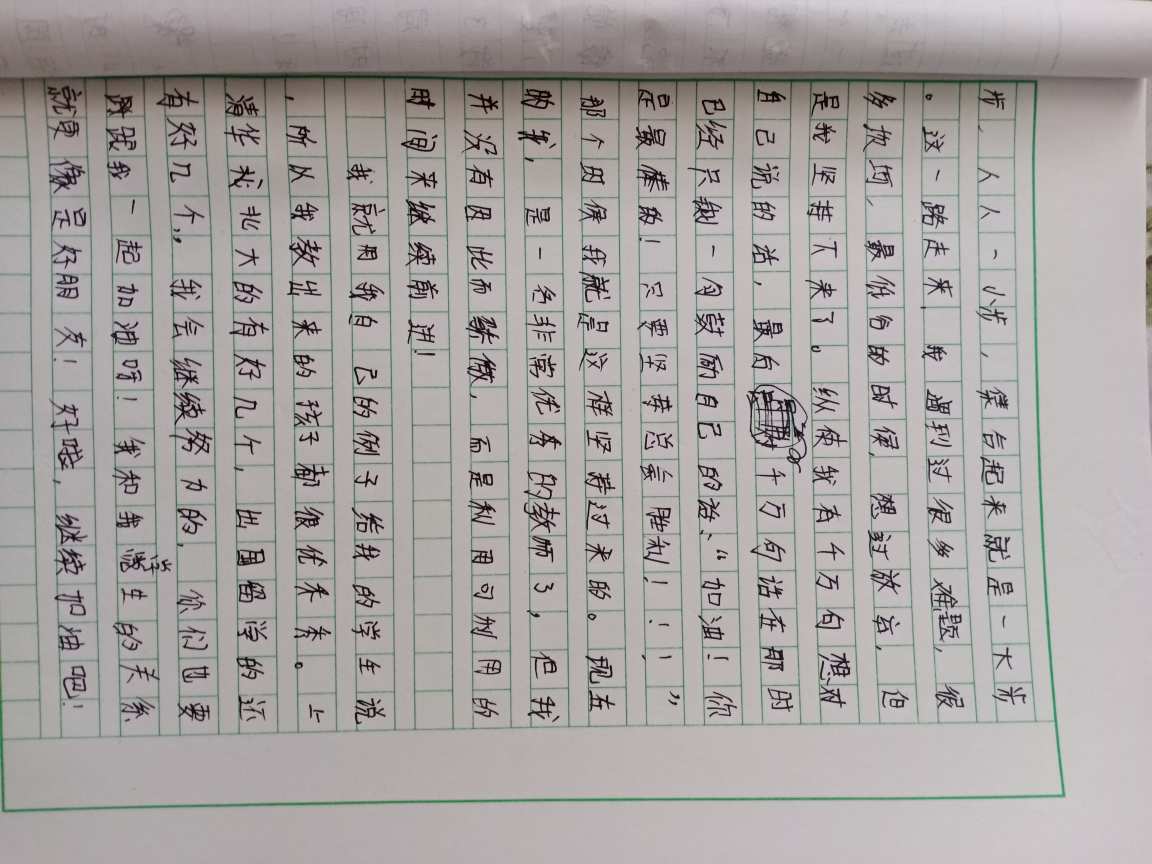 步，人人一小步，集合起来就是一大步
。这一路走来，我遇到过很多难题，很
多坎坷，最低谷的时候，想过放弃，但
是我坚持下来了。纵使我有千万句想对
自己说的话，最后千万句话在那时
已经只剩一句鼓励自己的话：“加油！你
是最棒的！只要坚持总会胜利！！！”
那个时候我就是这样坚持过来的。现在
的我，是一名非常优秀的教师了，但我
并没有因此而骄傲，而是利用可利用的
时间来继续前进！
我就用我自己的例子给我的学生说
，所以我教出来的孩子都很优秀。上
清华或北大的有好几个，出国留学的还
有好几个，我会继续努力的，你们也要
跟我一起加油呀！我和我学生的关系
就更像是好朋友！好啦，继续加油吧！